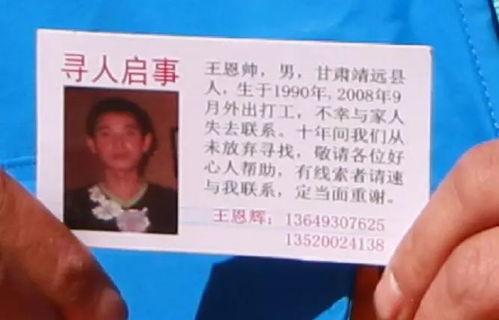 寻人启事
王恩帅，男，甘肃靖远县
人，生于1990年，2008年9
月外出打工，不幸与家人
失去联系。十年间我们从
未放弃寻找，敬请各位好
心人帮助，有线索者请速
与我联系，定当面重谢。
王恩辉：13649307625
13520024138